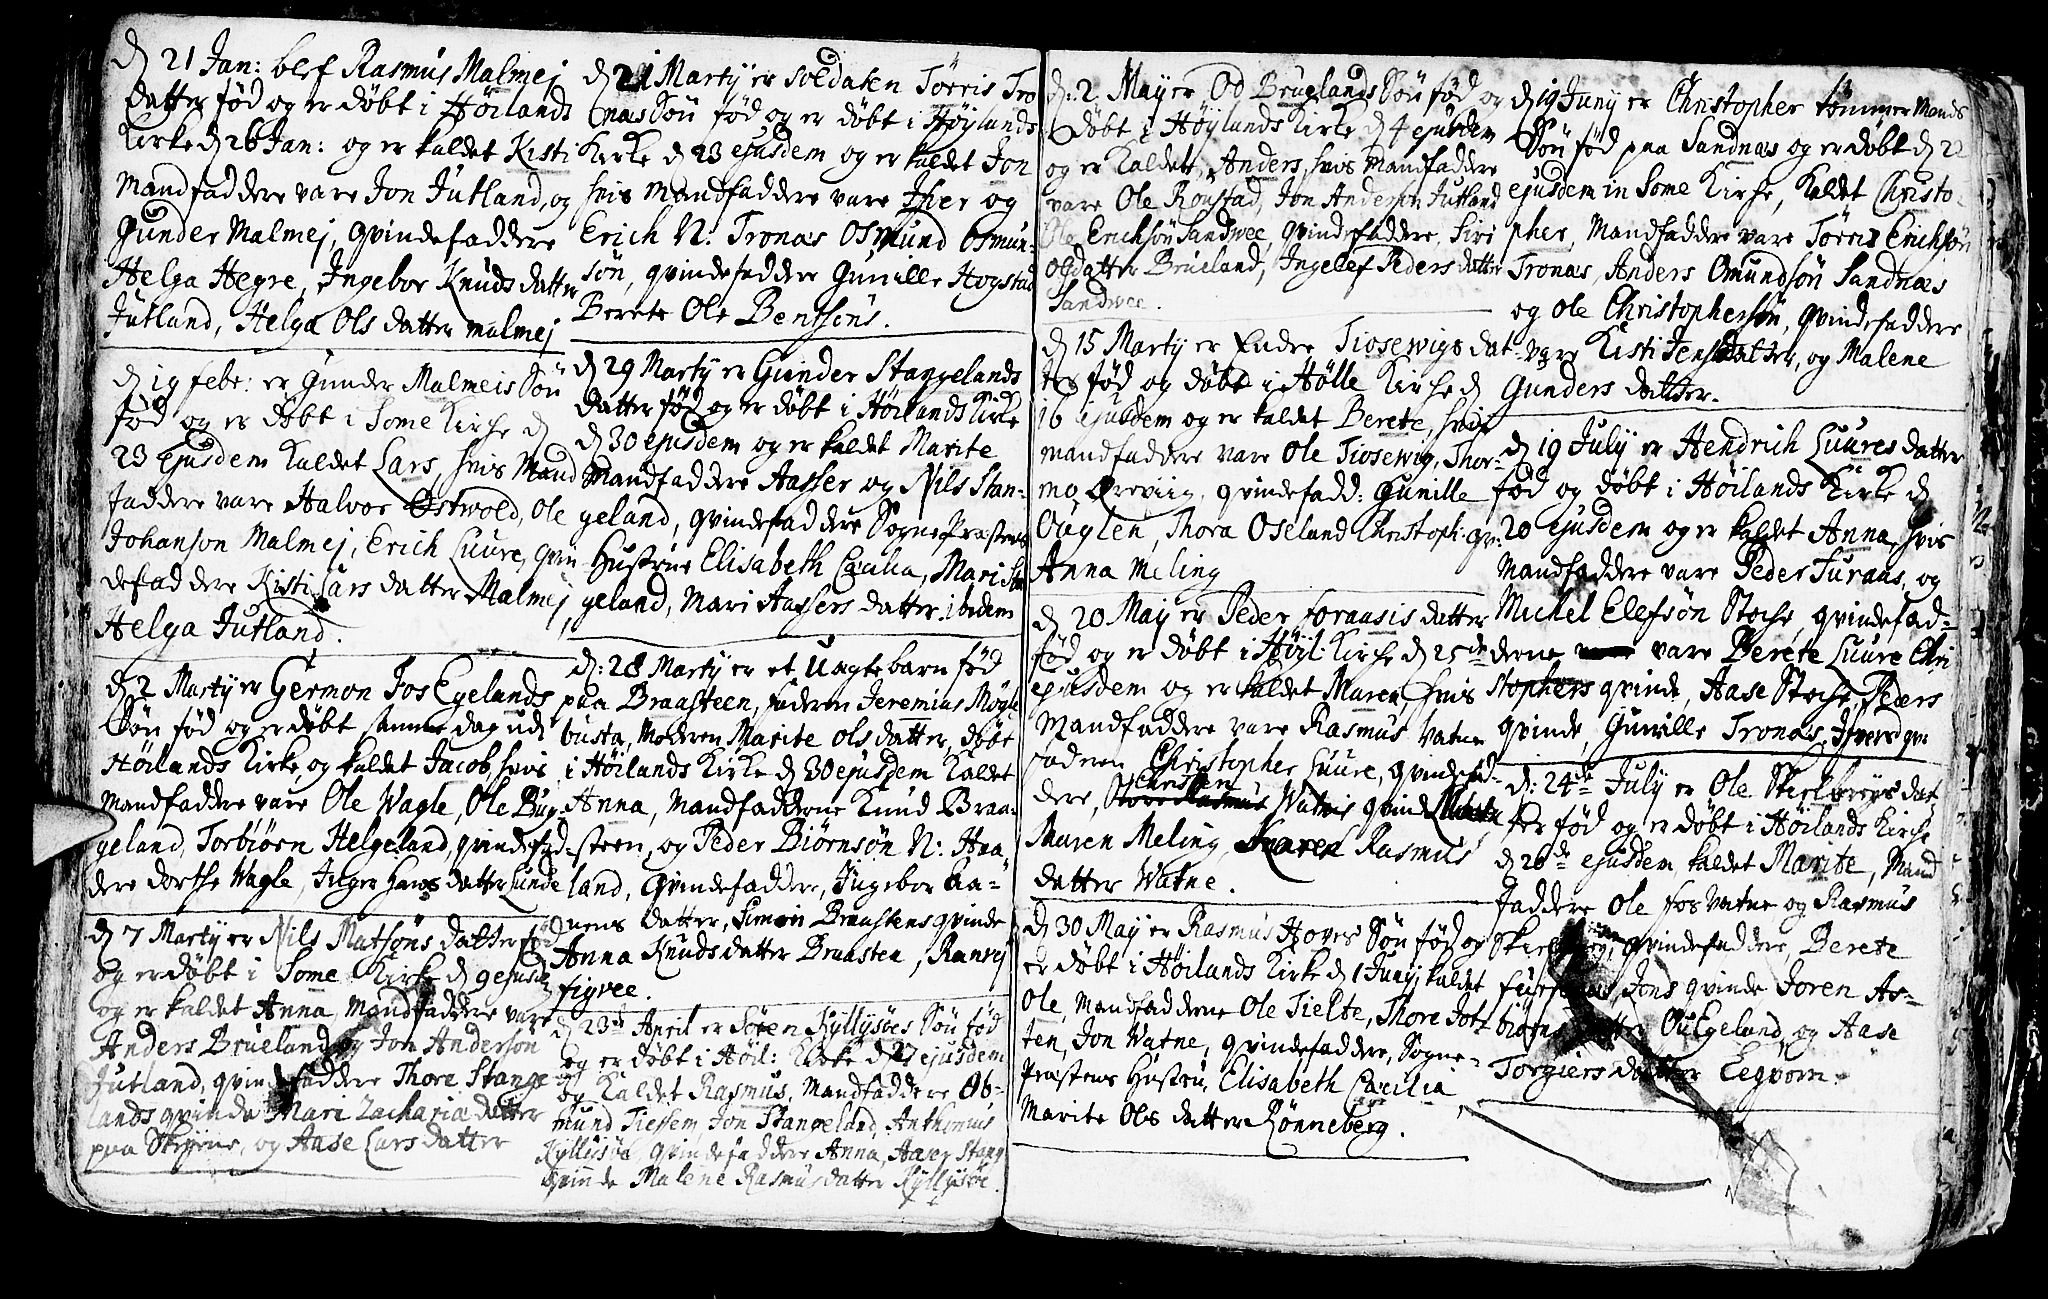 d 21 Jan: blef Rasmus Malmej
datter fød og er døbt i Höilands
Kirke d 26 Jan: og er kaldet Kisti
Mandfaddere vare Jon Jutland, og
Gunder Malmej, qvindefaddere
Helga Hegre, Ingebor Knuds datter
Jutland, Helga Ols datter malmej
d 19 febr: er Gunder Malmeis Sön
fød og er döbt i Some Kirke d
23 ejusdem Kaldet Lars, hvis Mand
faddere vare Halvor Østwold, Ole
Johanson Malmej, Erich Luure, qvin
defaddere Kisti Lars datter Malmej,
Helga Jutland.
d 2 Marty er Germon Jos Egelands
Sön fød og er døbt samme dag udi
Höilands Kirke og kaldet Jacob, hvis
Mandfaddere vare Ole Wagle, Ole Bug
geland, Torbiörn Helgeland, qvindefad
dere dorthe Wagle, Inger Hans datter Lunde
d 7 Marty er Nils Matsöns datter fød
og er døbt i Some Kirke d 9 ejusdem
og er kaldet Anna, Mandfaddere vare
Anders Brueland og Jon Anderson
Jutland, qvindefaddere Thore Stange
lands qvinde Mari Zacharia datter
paa Skeiene, og Aase Lars datter
d 21 Marty er Soldaten Törris Tro
næs Sön fød og er døbt i Höylands
Kirke d 23 ejusdem og er kaldet Jon
hvis Mandfaddere vare Ifver og
Erich N: Tronæs Osmund Osmun-
sön, qvindefadder Gunille Hogstad
Berete Ole Bentsöns.
d 29 Marty er Gunder Stangelands
datter fød og er døbt i Höilands Kirke
d 30 ejusdem og er kaldet Marite
Mandfaddere Aasser og Nils Stan-
geland, qvindefaddere SognePræstens
Hustrue Elisabeth Cæcilia, Mari Stan
geland, Mari Aassers datter ibidem
d: 28 Marty er et Uægte barn fød
paa Braasteen, faderen Jeremias Mögle
busta, Moderen Marite ols datter, döbt
i Höilands Kirke d 30 ejusdem Kaldet
Anna, Mandfadderne Knud Braa-
steen, og Peder Biörnsön N: Haa
land, qvindefaddere, Ingebor Aa-
nens datter, Simon Braastens qvinde
Anna Knuds datter Braasten, Ranvej
figvee.
d 23 April er Sören Kyllysöes Sön fød
og er döbt i Höil: Kirke d 27 ejusdem
og Kaldet Rasmus, Mandfaddere Ob-
mund Tiessem, Jon Stangeland, Anthonius
Kyllisöe, qvindefaddere Anna, Aaser Stang
qvinde Malene Rasmus datter Kyllysöe.
d: 2 May er Od Bruelands Sön fød og
Døbt i Höylands Kirke d 4 ejusdem
og er kaldet, Anders, hvis Mandfaddere
vare Ole Roustad, Jon Anderson Jutland
Ole Erichsön Sandvee, qvindefaddere, Siri
Olsdatter Brueland, Ingelef Peders datter
Sandwee.
d 15 Marty er Endre Tiosewigs dat-
ter fød og døbt i Hölle Kirke d
16 ejusdem og er kaldet Berete, hvis
mandfaddere vare Ole Tiosewig, Thor-
mo Öreviig, qvindefadd: Gunille
Ouglen, Thora Oseland Christoph: qvi:
Anna Meling
d 20 May er Peder foraasis datter
fød og er döbt i Höyl: Kirke d 25 de
ejusdem og er kaldet Maren, hvis
Mandfaddere vare Rasmus Vatne
faderen Christopher Luure, qvindefad-
dere, Karsten Watnis qvinde
Maren Meling, Karen Rasmus
datter Watne.
d 30 May er Rasmus Hoves Sön fød og
er döbt i Höilands Kirke d 1 Junij kaldet
Ole, Mandfadderne Ole Tielte, Thore Jot-
ten, Jon Watne, qvindefaddere, Sogne-
Præstens Hustru, Elisabeth Cæcilia
Marite Ols datter Rönneberg.
d 19 Juny er Christopher tömmer Mands
Sön fød paa Sandnæs og er døbt d 22
ejusdem in Some Kirke, kaldet Christo-
pher, Mandfaddere vare Törris Erichsön
Tronæs, Anders Omundsön Sandnæs
og Ole Christophersön, qvindefaddere
vare Kisti Jens datter, og Malene
Gunders datter.
d 19 July er Hendrich Luures datter
fød og döbt i Höilands Kirke d
20 ejusdem og er kaldet Anna, hvis
Mandfaddere vare Peder Furaas, og
Michel Elefsön Stoche, qvindefad-
derne vare Berete Luure Chri
stophers qvinde, Aase Stoche, Peders
qvinde, Gunille Tronæs, Ifvers qvi
d: 24de July er Ole Skielbreys dat
ter fød og er døbt i Höilands Kirke
d 26de ejusdem kaldet Marite, Mand
faddere Ole fosvatne og Rasmus
qvindefaddere, Berete
Jons qvinde Joren As-
biörns datter Ouegeland, og Aase
Torgiers datter Eegporn.